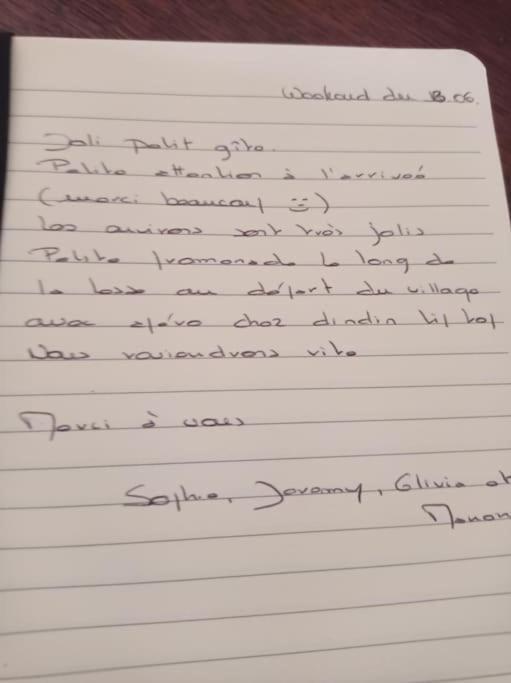 Weekend du 13.06.
Joli petit gîte.
Petite attention à l'arrivée
(merci beaucoup :))
Les environs sont très jolis
Petite promenade le long de
la Lesse au départ du village
avec apéro chez dindin tip top
Nous reviendrons vite
Merci à vous
Sophie, Jeremy, Olivia et
Manon